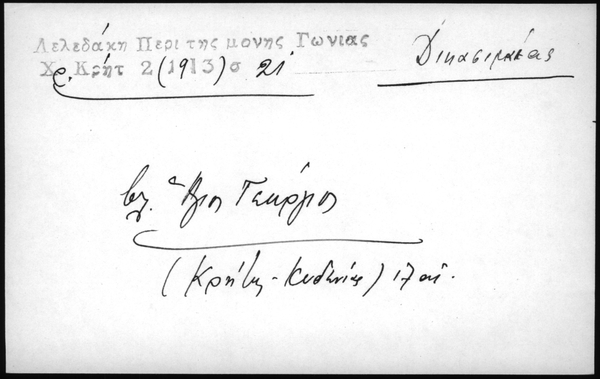 Λελεδάκη Περι της μονης Γωνιας
Χρ. Κρήτ 2 (1913) σ 21
Δικασιμαίας
βλ. Άγιος Γεώργιος
(Κρήτης - Κυδωνίας) 17 αι.